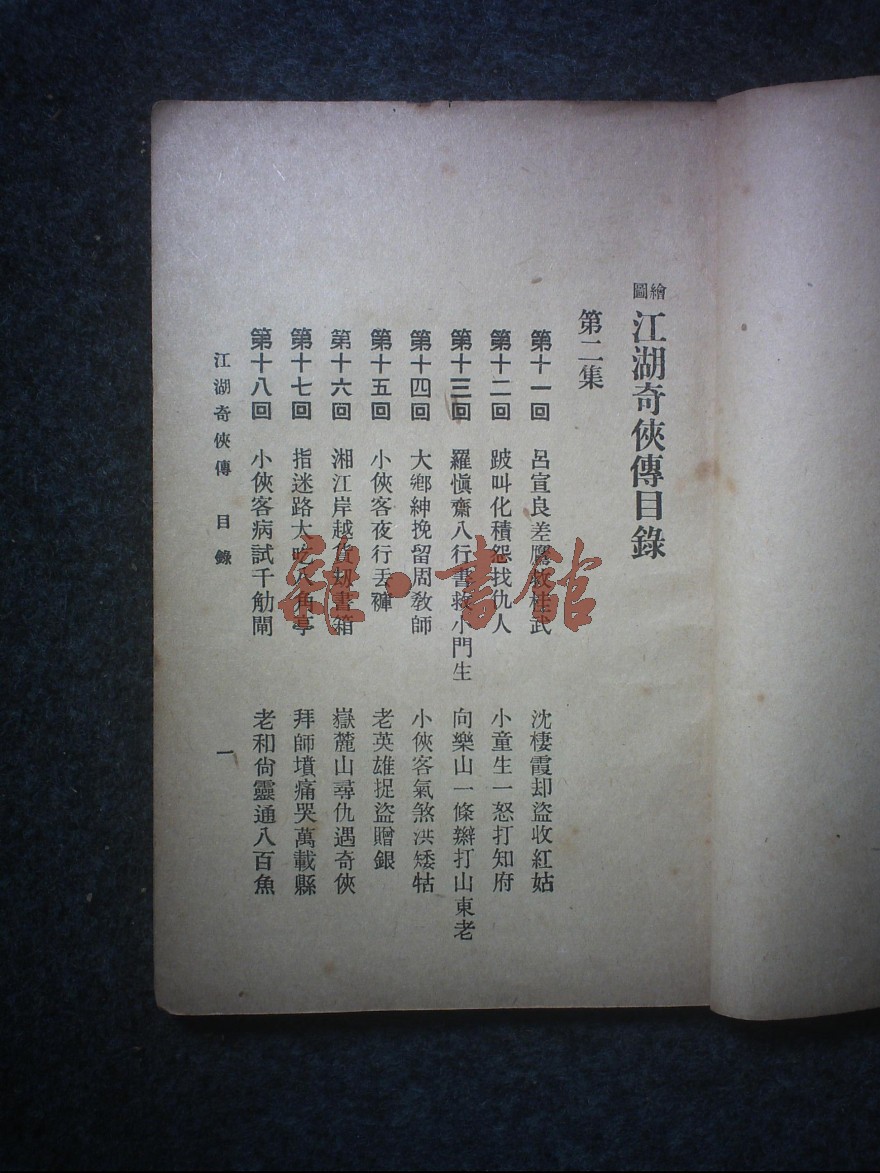 繪圖 江湖奇俠傳目錄
第二集
第十一回 呂宣良差鷹救桂武 沈棲霞却盜收紅姑
第十二回 跛叫化積怨找仇人 小童生一怒打知府
第十三回 羅慎齋八行書救小門生 向樂山一條辮打山東老
第十四回 大鄉紳挽留周教師 小俠客氣煞洪矮牯
第十五回 小俠客夜行丟褲 老英雄捉盜贈銀
第十六回 湘江岸越貨劫書箱 嶽麓山尋仇遇奇俠
第十七回 指迷路大吃八角亭 拜師墳痛哭萬載縣
第十八回 小俠客病試千觔閘 老和尙靈通八百魚
江湖奇俠傳 目錄 一
雜·書館